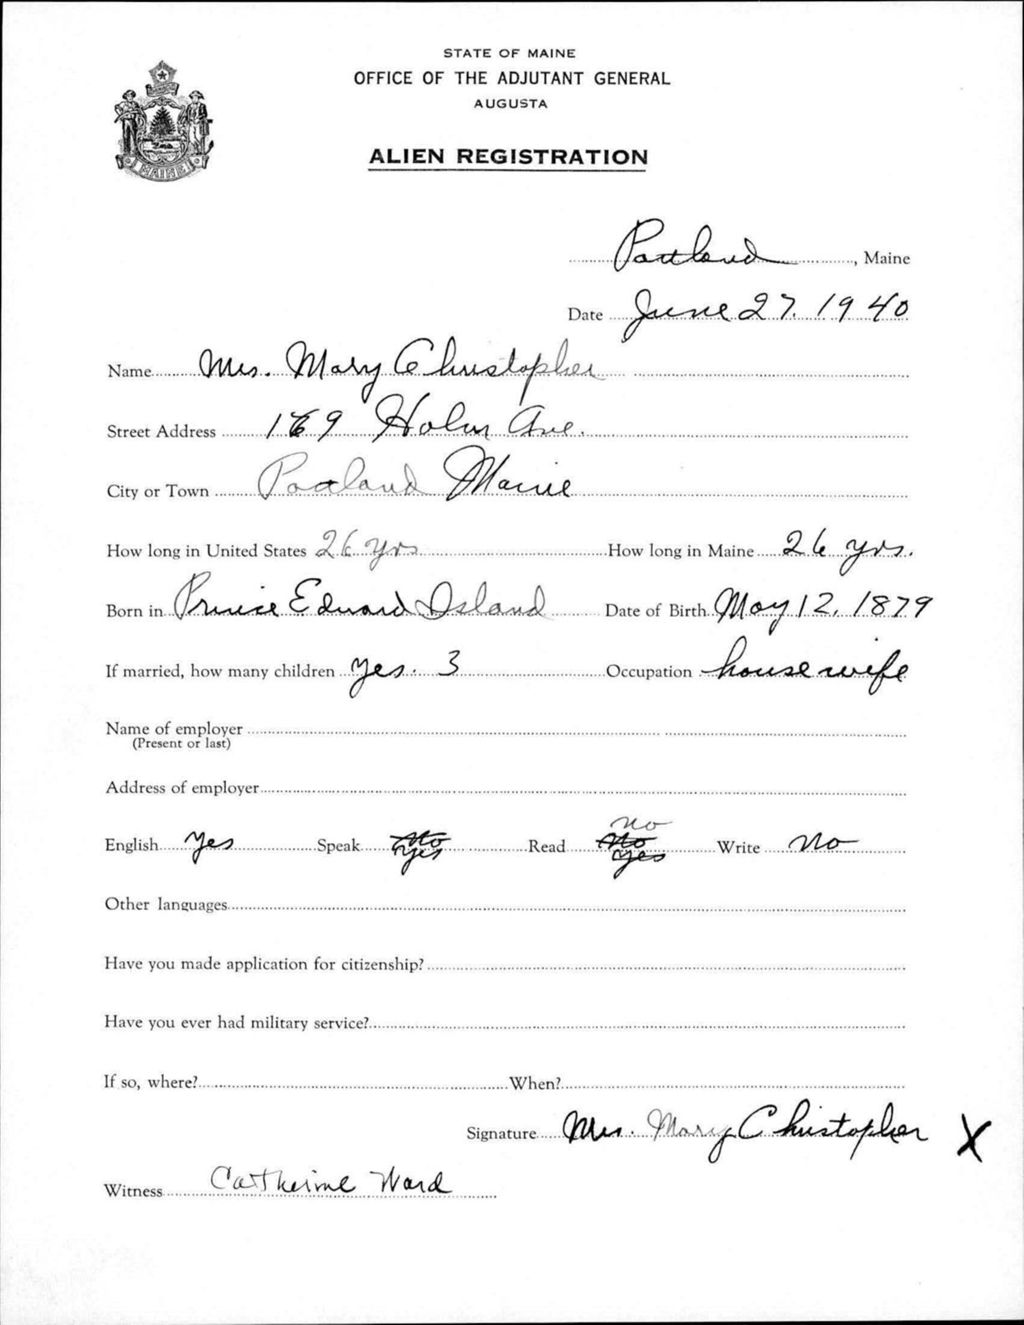 STATE OF MAINE
OFFICE OF THE ADJUTANT GENERAL
AUGUSTA
MAINE
ALIEN REGISTRATION
Portland, Maine
Date June 27. 1940
Name Mrs. Mary Christopher
Street Address 169 Holm Ave.
City or Town Portland Maine
How long in United States 26 yrs How long in Maine 26 yrs.
Born in Prince Edward Island Date of Birth May 12, 1879
If married, how many children yes. 3 Occupation housewife
Name of employer
(Present or last)
Address of employer
no
English yes Speak No Read No Write No
yes yes
Other languages
Have you made application for citizenship?
Have you ever had military service?
If so, where? When?
Signature Mrs. Mary Christopher X
Witness Catherine Ward